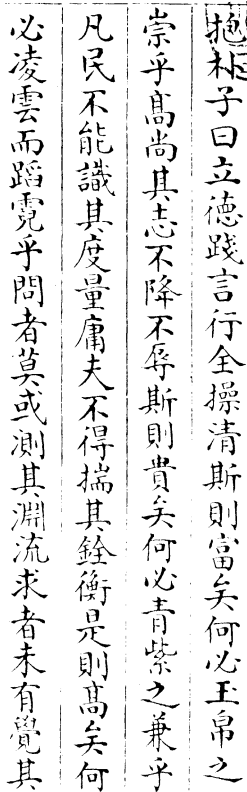 抱朴子曰立德踐言行全操清斯則富矣何必玉帛之
崇乎髙尚其志不降不辱斯則貴矣何必青紫之兼乎
凡民不能識其度量庸夫不得揣其銓衡是則髙矣何
必凌雲而蹈霓乎問者莫或測其淵流求者未有覺其